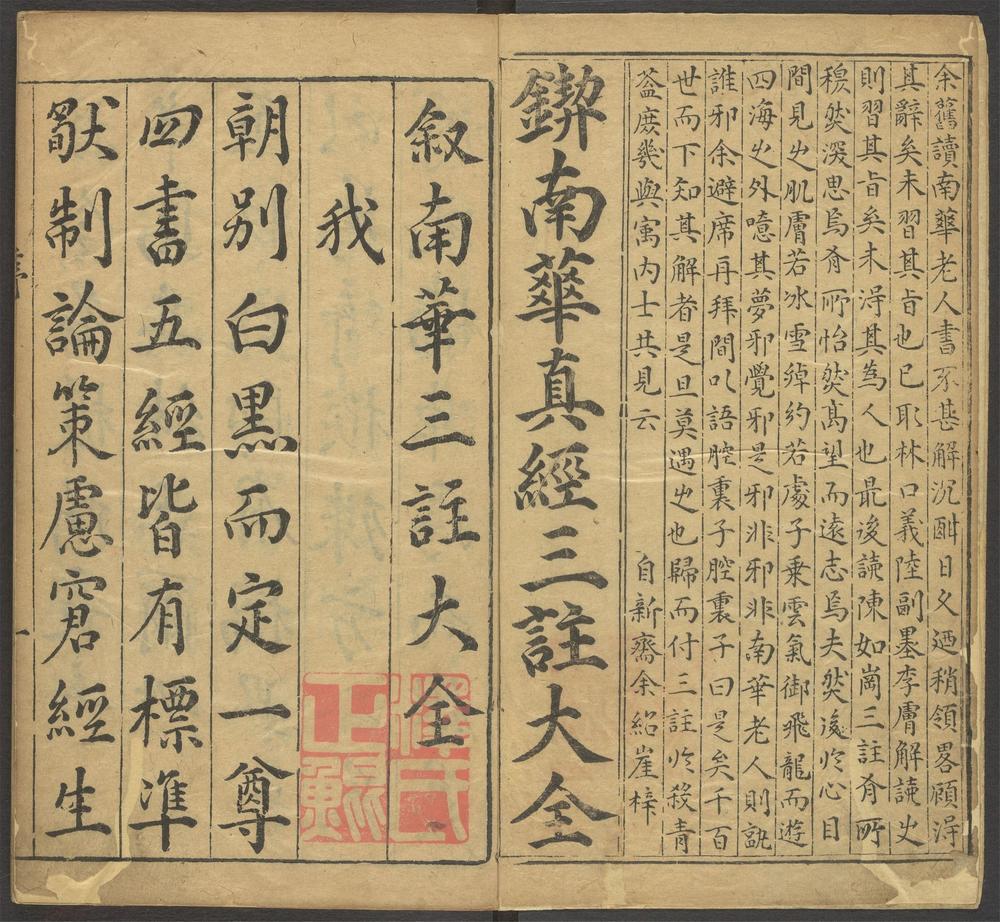 余舊讀南華老人書不甚解沉酣日久迺稍領畧顧淂
其辭矣未習其旨也已取林口義陸副墨李膚解讀㞢
則習其旨矣未淂其為人也最後讀陳如崗三註有所
穆然深思焉有所怡然髙望而遠志焉夫然後於心目
間見㞢肌膚若冰雪綽約若處子乗雲氣御飛龍而遊
四海㞢外噫其夢邪覺邪是邪非邪非南華老人則
誰邪余避席再拜間㠯語腔裏子腔裏子曰是矣千百
世而下知其解者是旦莫遇㞢也歸而付三註於殺青
葢庶幾與寓内士共見云
自新齋余紹崖梓
鍥南華真經三註大全
叙南華三註大全
我
朝別白黒而定一尊
四書五經皆有標准
猷制論策慮窘經生